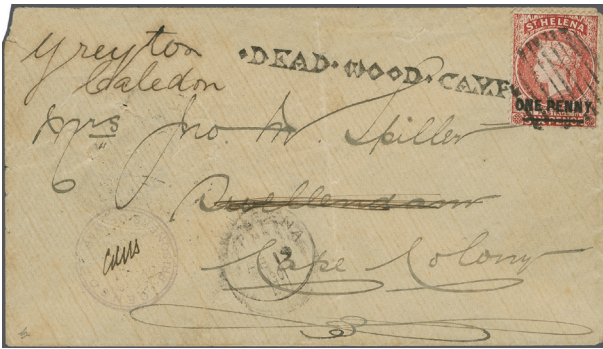 Greyton
Caledon
·DEAD·WOOD·CAMP·
ST HELENA
ONE PENNY
Mrs Jno. W. Spiller
Swellendam
HELENA
Cape Colony